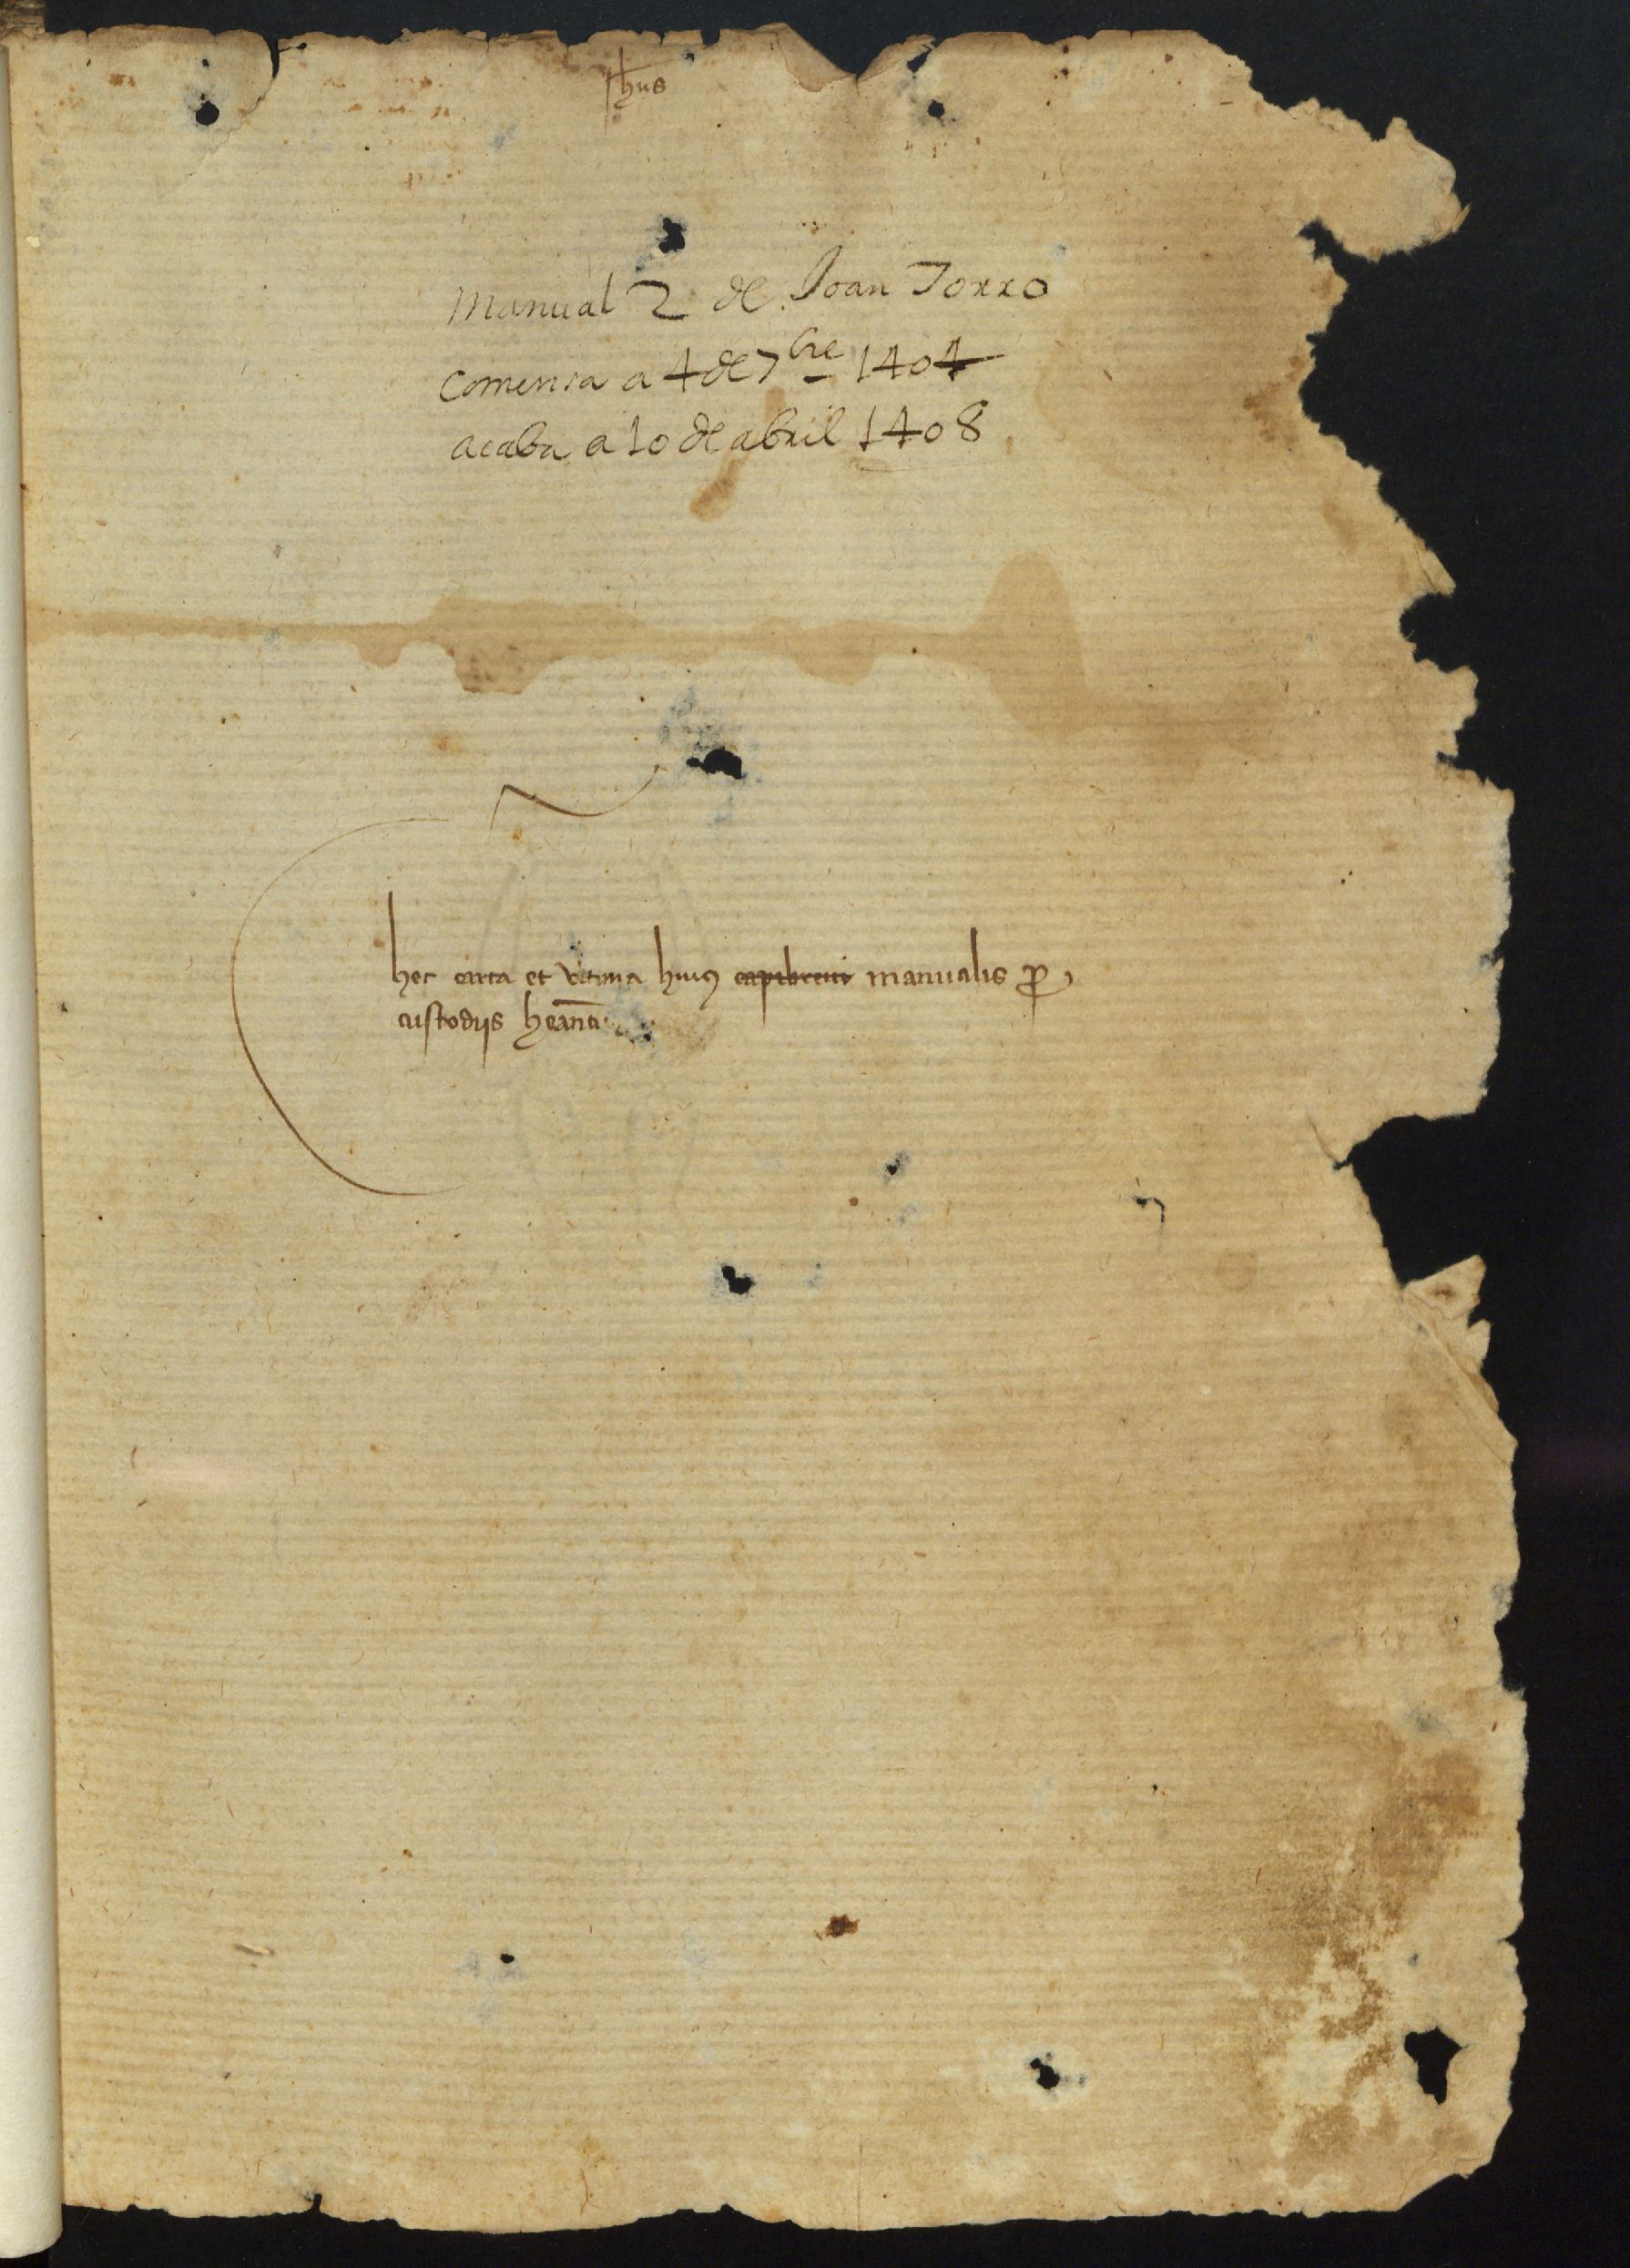 Jhus
Manual 2 de Joan Torro
Comensa a 4 de 7bre 1404
acaba a 10 de abril 1408
hec carta et vltima huius capibreui manualis pro
custodiis